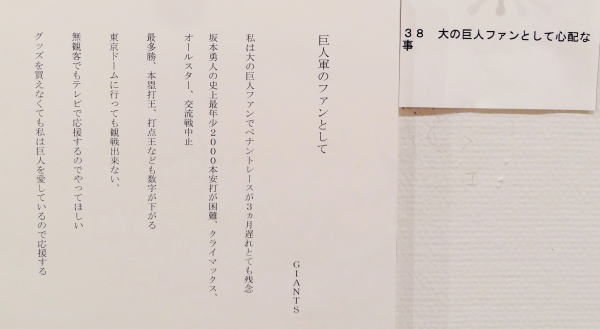 38　大の巨人ファンとして心配な
事
巨人軍のファンとして
GIANTS
私は大の巨人ファンでペナントレースが３ヵ月遅れとても残念
坂本勇人の史上最年少２０００本安打が困難、クライマックス、
オールスター、交流戦中止
最多勝、本塁打王、打点王なども数字が下がる
東京ドームに行っても観戦出来ない、
無観客でもテレビで応援するのでやってほしい
グッズを買えなくても私は巨人を愛しているので応援する